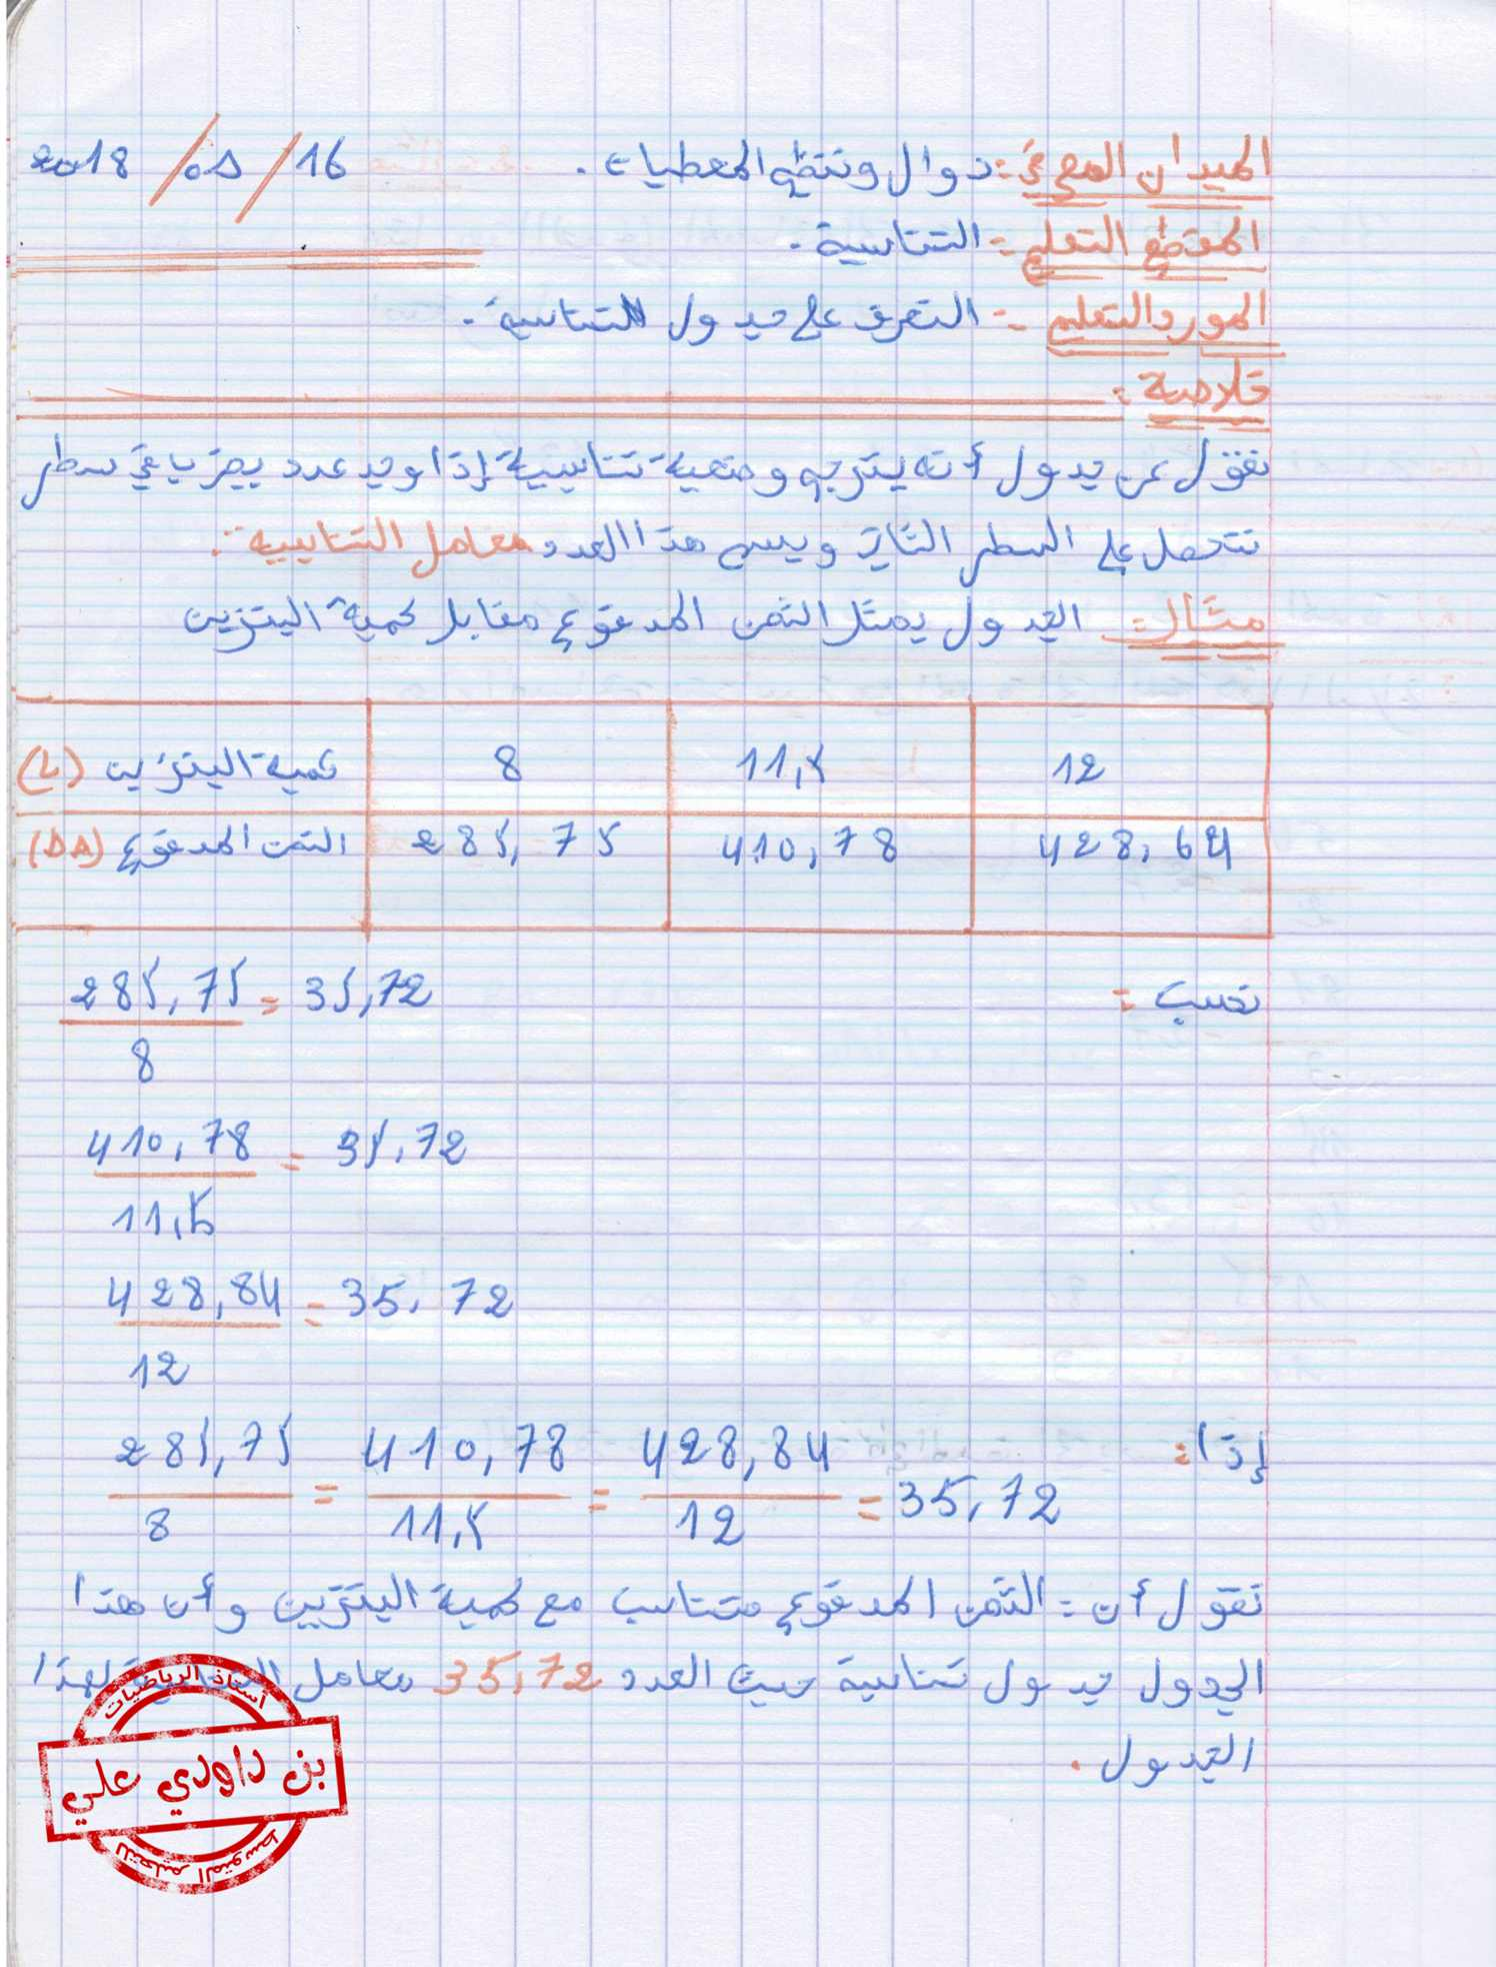 الميدان المعرفي: دوال وتنظيم المعطيات. 16/01/2018
المقطع التعلمي: التناسبية.
المورد التعلمي: التعرف على جدول التناسبية.
خلاصة:
نقول عن جدول أنه يترجم وضعية تناسبية إذا وجد عدد يضرب في سطر
نتحصل على السطر الثاني ويسمى هذا العدد معامل التناسبية.
مثال: الجدول يمثل الثمن المدفوع مقابل كمية البنزين
كمية البنزين (L) 8 11,5 12
الثمن المدفوع (DA) 285,75 410,78 428,64
نحسب:
285,75 / 8 = 35,72
410,78 / 11,5 = 35,72
428,84 / 12 = 35,72
إذا:
285,75 / 8 = 410,78 / 11,5 = 428,84 / 12 = 35,72
نقول أن: الثمن المدفوع متناسب مع كمية البنزين وأن هذا
الجدول جدول تناسبية حيث العدد 35,72 معامل التناسبية لهذا
الجدول.
أستاذ الرياضيات
بن داودي علي
للتعليم المتوسط